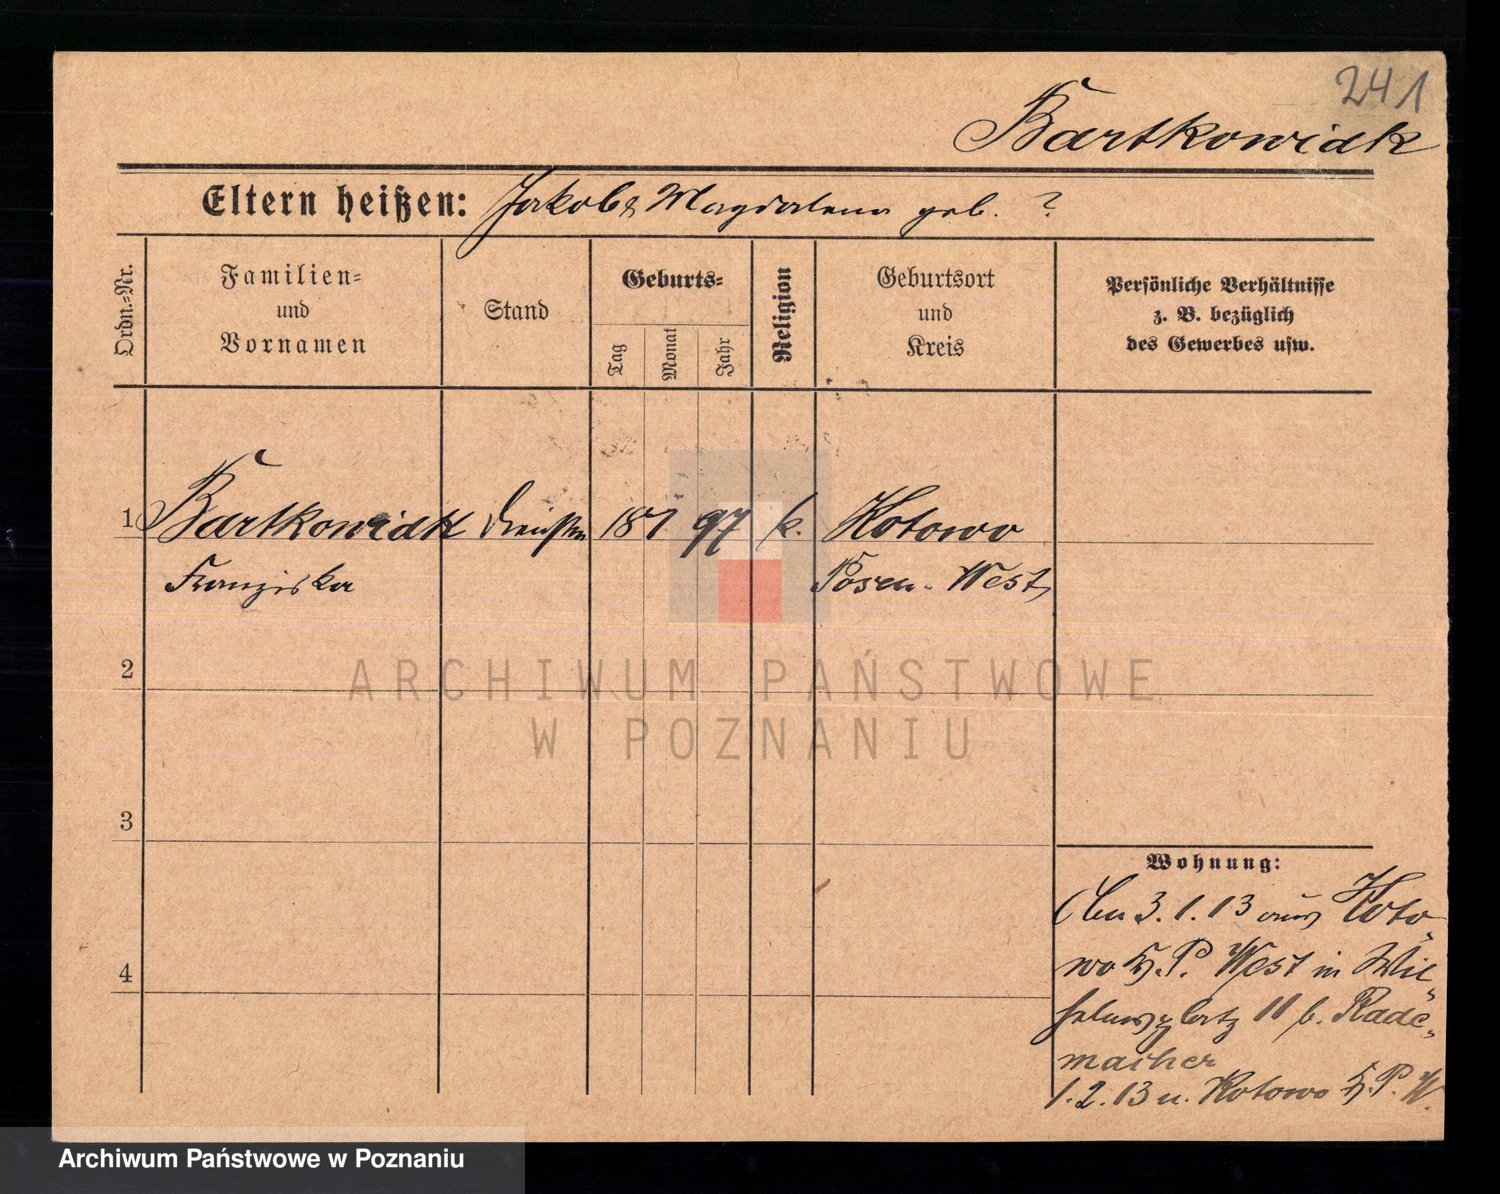 241
Bartkowiak
Eltern heißen: Jakob & Magdalena geb. ?
Ordn.-Nr.
Familien-
und
Vornamen
Stand
Geburts-
Tag
Monat
Jahr
Religion
Geburtsort
und
Kreis
Persönliche Verhältnisse
z. B. bezüglich
des Gewerbes usw.
1 Bartkowiak 18 1 97 k. Kotowo
Franziska Posen-West
2
ARCHIWUM PAŃSTWOWE
W POZNANIU
3
Wohnung:
3.1.13 aus Koto-
wo K. P. West in Wil-
helmsplatz 11 b. Rade-
macher
4
1.2.13 n. Kotowo K. P. W.
Archiwum Państwowe w Poznaniu